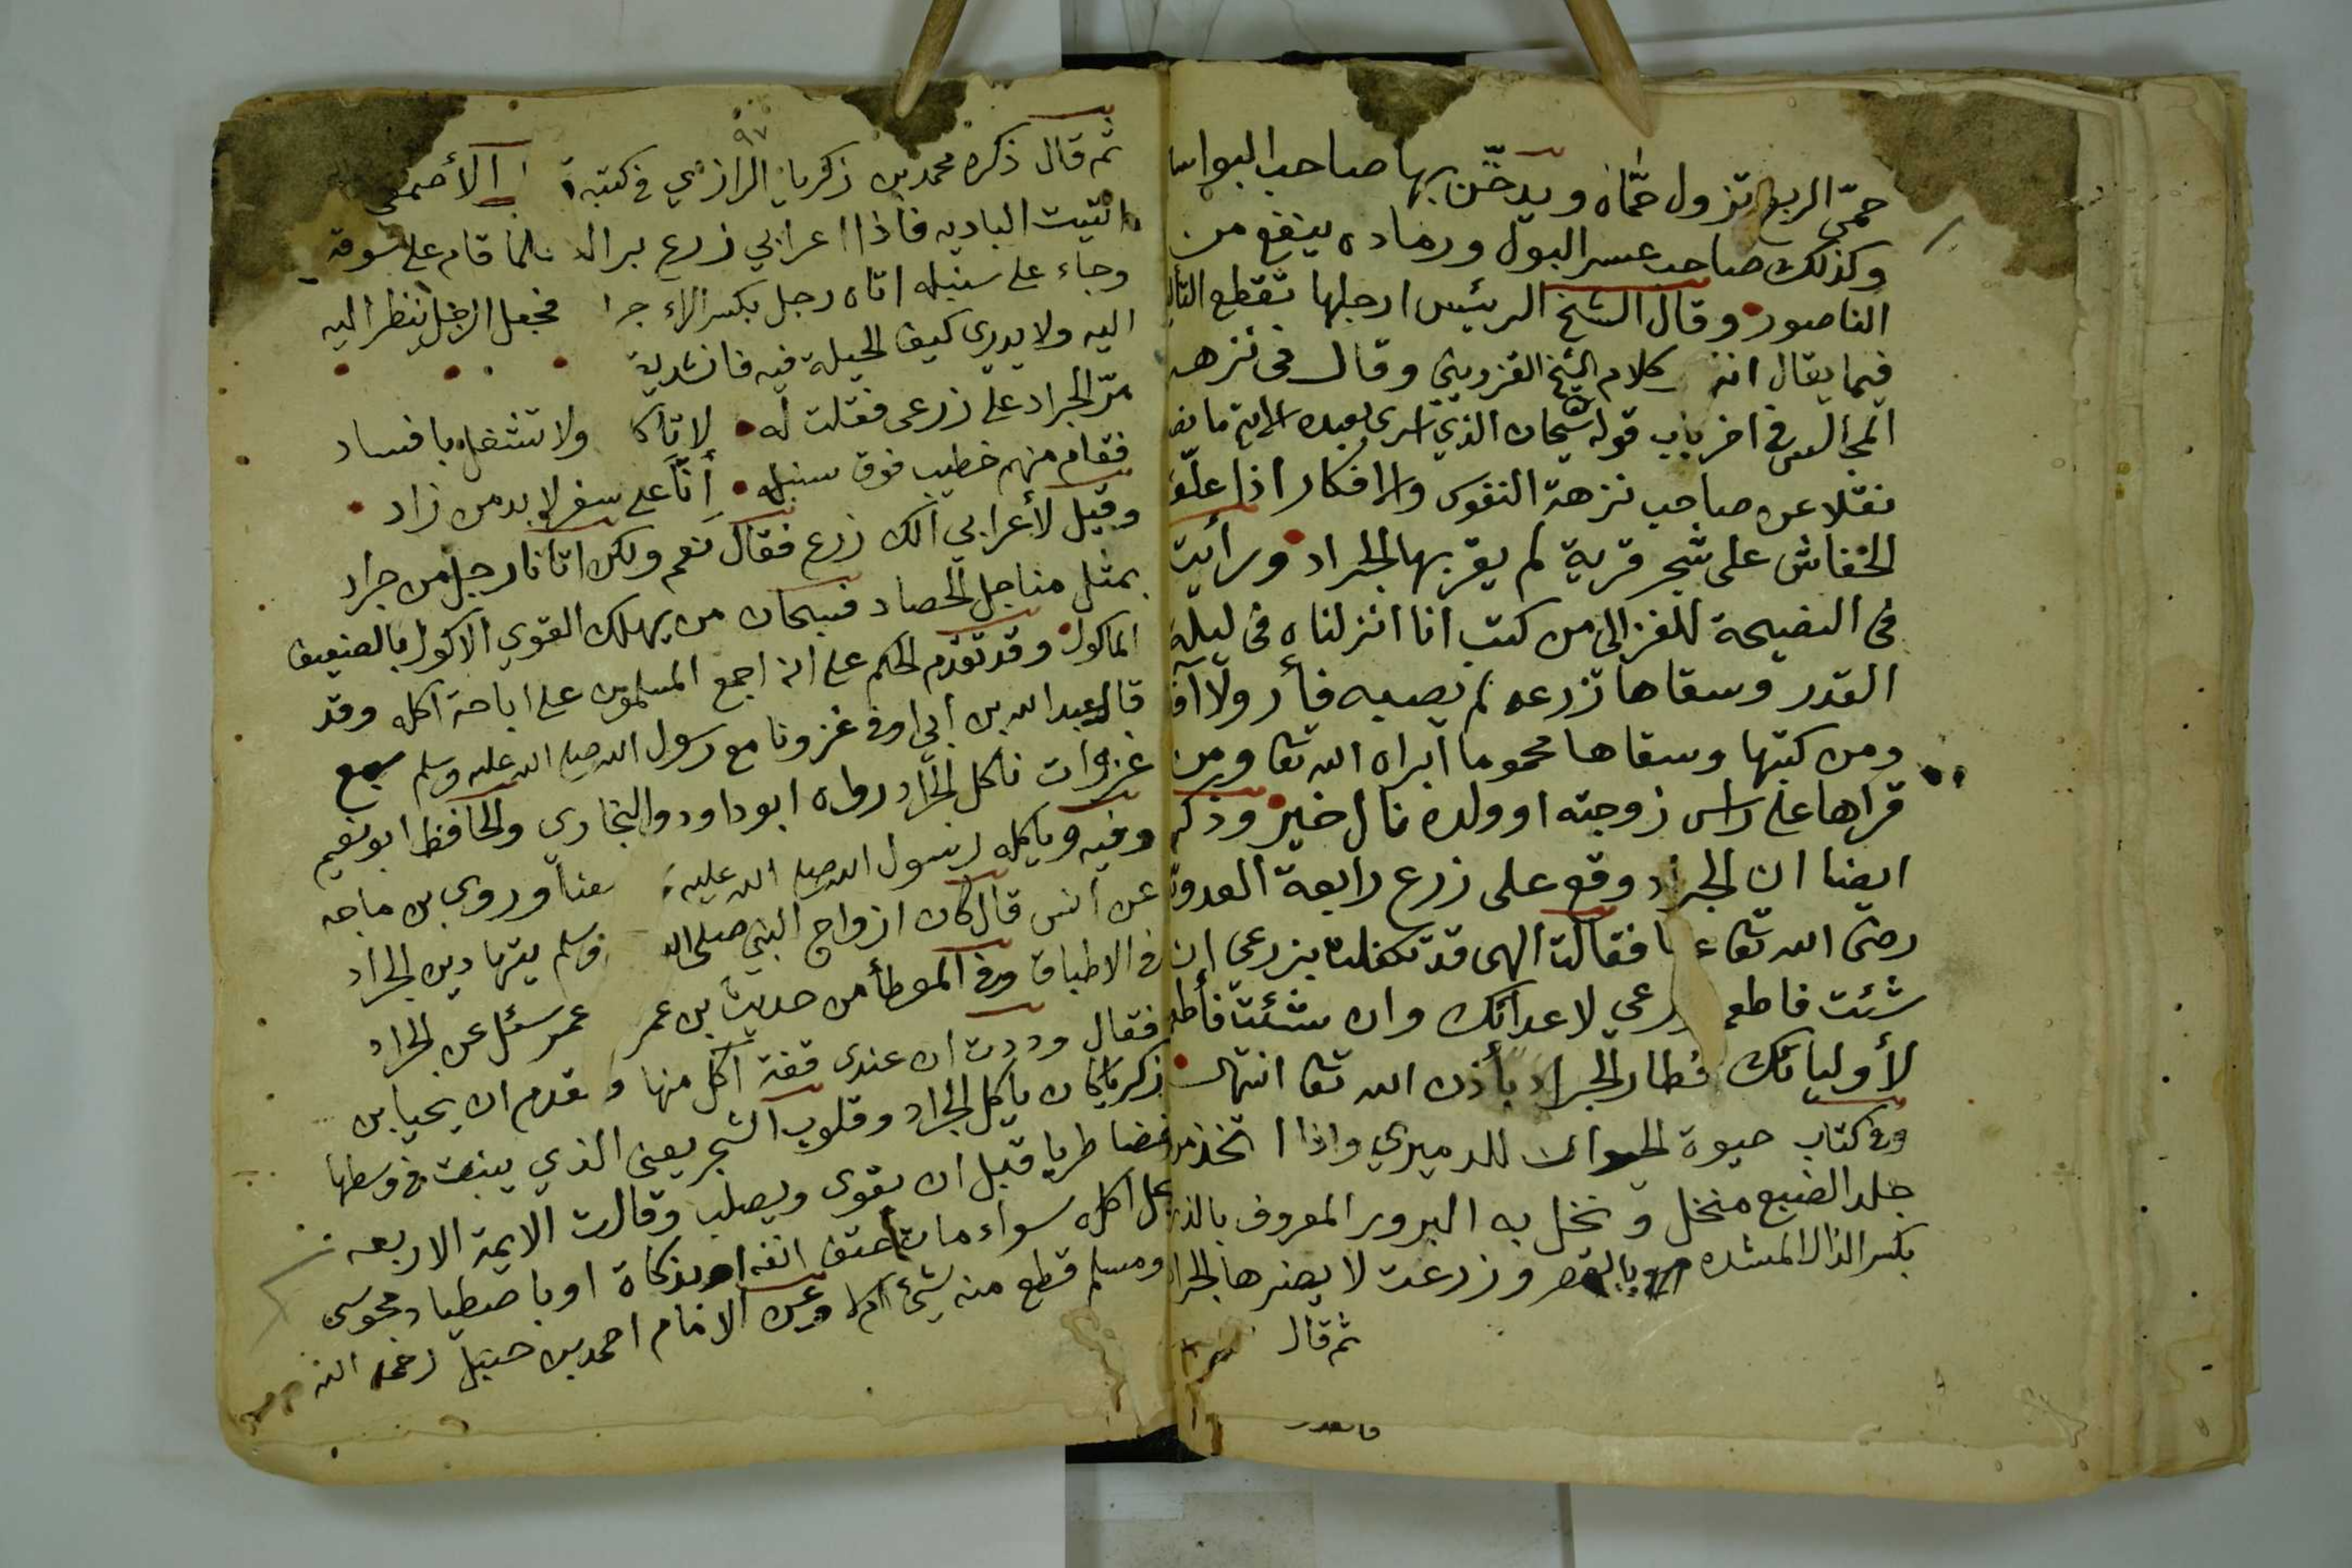 حمّى الربع تزول حمّاه ويدخّن بها صاحب البواسير
وكذلك صاحب عسر البول ورماده ينفع من
الناصور وقال الشيخ الرئيس ارجلها تقطع الثآليل
فيما يقال انتهى كلام الشيخ القزويني وقال في نزهه
المجالس في اخر باب قوله سبحان الذي اسرى بعبده الاية ما نصه
نقلا عن صاحب نزهة النفوس والافكار اذا علّق
الخفاش على شجر قرية لم يقربها الجراد ورأيت
في النصيحة للغزالي من كتب انا انزلناه في ليلة
القدر وسقاها زرعه لم يصبه فأر ولا آفة
ومن كتبها وسقاها محموما ابراه الله تعا ومن
قراها على راس زوجته او ولده نال خير وذكر
ايضا ان الجراد وقع على زرع رابعة العدوية
رضى الله تعا عنها فقالت الهى قد تكفلت بزرعى ان
شئت فاطعم زرعي لاعدائك وان شئت فأطعمه
لأوليائك فطار الجراد بأذن الله تعا انتهى
وفي كتاب حيوة الحيوان للدميري واذا اتخذ من
جلد الضبع منخل ونخل به البرور المعروف بالذر
بكسر الذال المشدده وزرعت لا يضرها الجراد
ثم قال
٩٧
ثم قال ذكره محمد بن زكريا الرازي في كتبه الأصمعي
اتيت الباديه فاذا اعرابي زرع برا له فلما قام على سوقه
وجاء على سنبله اتاه رجل بكسر الراء جراد فجعل الرجل ينظر اليه
اليه ولا يدرى كيف الحيلة فيه فانشد
مرّ الجراد على زرعى فقلت له لا تأكل ولا تشتغل بافساد
فقام منهم خطيب فوق سنبله أنّا على سفر لا بد من زاد
وقيل لأعرابي الك زرع فقال نعم ولكن اتانا رجل من جراد
بمثل مناجل الحصاد فسبحان من يهلك القوي الاكول بالضعيف
الماكول وقد تقدم الحكم على انه اجمع المسلمون على اباحة اكله وقد
قال عبد الله بن أبي اوفى غزونا مع رسول الله صلى الله عليه وسلم سبع
غزوات ناكل الجراد رواه ابو داود والبخاري والحافظ ابو نعيم
وفيه وياكله رسول الله صلى الله عليه معنا وروى بن ماجه
عن أنس قال كان ازواج النبي صلى الله وسلم يتهادين الجراد
في الاطباق وفي الموطأ من حديث بن عمر عمر سئل عن الجراد
فقال وددت ان عندى قفة آكل منها وتقدم ان يحيا بن
زكريا كان ياكل الجراد وقلوب الشجر يعنى الذي ينبت في وسطها
غضا طريا قبل ان يقوى ويصلب وقالت الايمة الاربعه
يحل اكله سواء مات حتف انفه او بذكاة او باصطياد مجوسى
ومسلم قطع منه شئ ام لا وعن الامام احمد بن حنبل رحمه الله